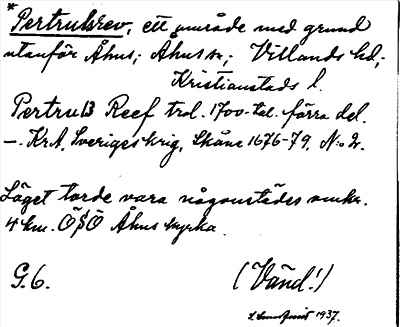 *Pertrulsrev, ett område med grund
utanför Åhus; Åhus sn; Villands hd;
Kristianstads l.
Pertruß Reef trol. 1700-tal. förra del.
–. Kr.A. Sveriges krig, Skåne 1676-79. N:o 2.
Läget torde vara någonstädes omkr.
4 km. ÖSÖ Åhus kyrka.
G.6. (Vänd!)
1937.